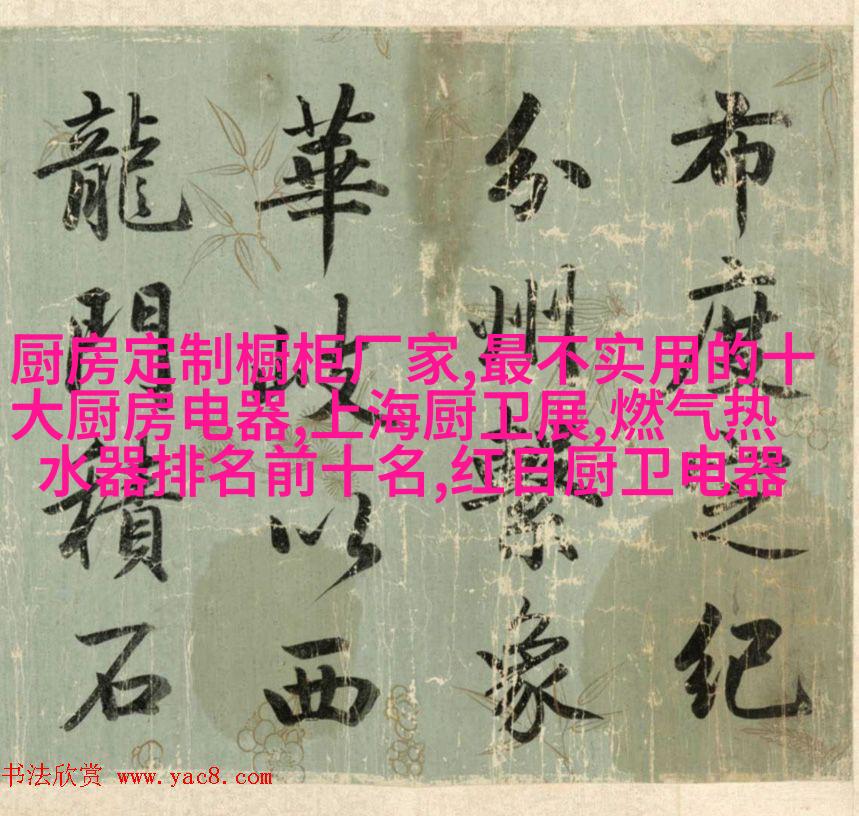 布度之紀
分州繫象
華岐以西
龍門積石
厨房定制橱柜厂家,最不实用的十
大厨房电器,上海厨卫展,燃气热
水器排名前十名,红日厨卫电器
书法欣赏 www.yac8.com